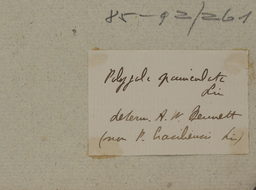 85-92/261
Polygala paniculata
Lin
determ. A. W. Bennett
(non P. brasiliensis Lin)